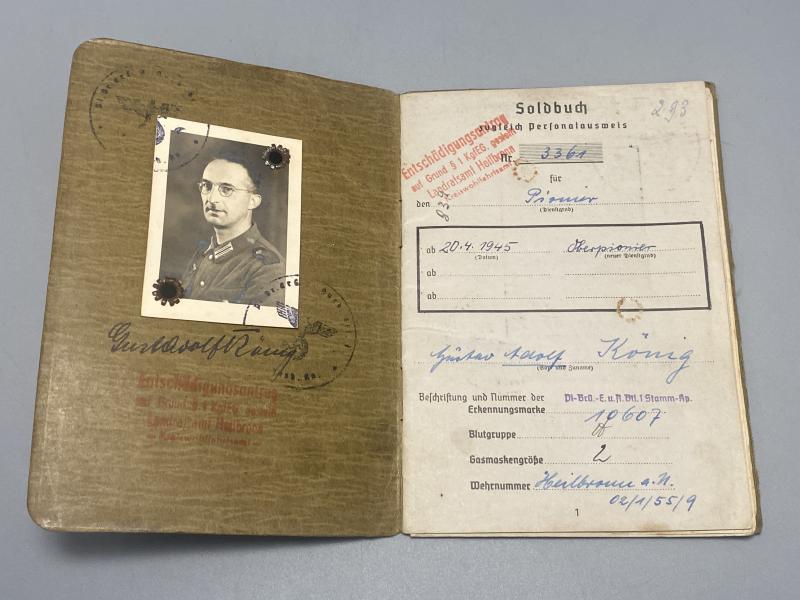 Gust Adolf König
Entschädigungsantrag
auf Grund § 1 KgfEG. gestellt
Landratsamt Heilbronn
– Kreiswohlfahrtsamt –
Soldbuch
293
zugleich Personalausweis
Entschädigungsantrag
auf Grund § 1 KgfEG. gestellt
Landratsamt Heilbronn
Kreiswohlfahrtsamt
Nr. 3361
für
den Pionier
(Dienstgrad)
ab 20.4.1945 Oberpionier
(Datum) (neuer Dienstgrad)
ab
ab
Gustav Adolf König
(Vor- und Zuname)
Beschriftung und Nummer der Pi-Brü.-E.u.A. Btl. 1 Stamm-Kp.
Erkennungsmarke 10607
Blutgruppe A
Gasmaskengröße 2
Wehrnummer Heilbronn a.N.
02/1/55/9
1